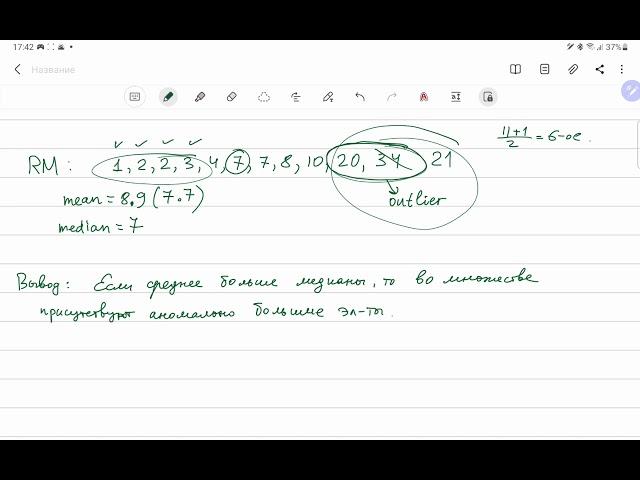 17:42 37%
Название
11+1/2 = 6-ое.
RM: 1, 2, 2, 3, 4, 7, 7, 8, 10, 20, 34 21
mean = 8.9 (7.7) outlier
median = 7
Вывод: Если среднее больше медианы, то во множестве
присутствуют аномально большие эл-ты.